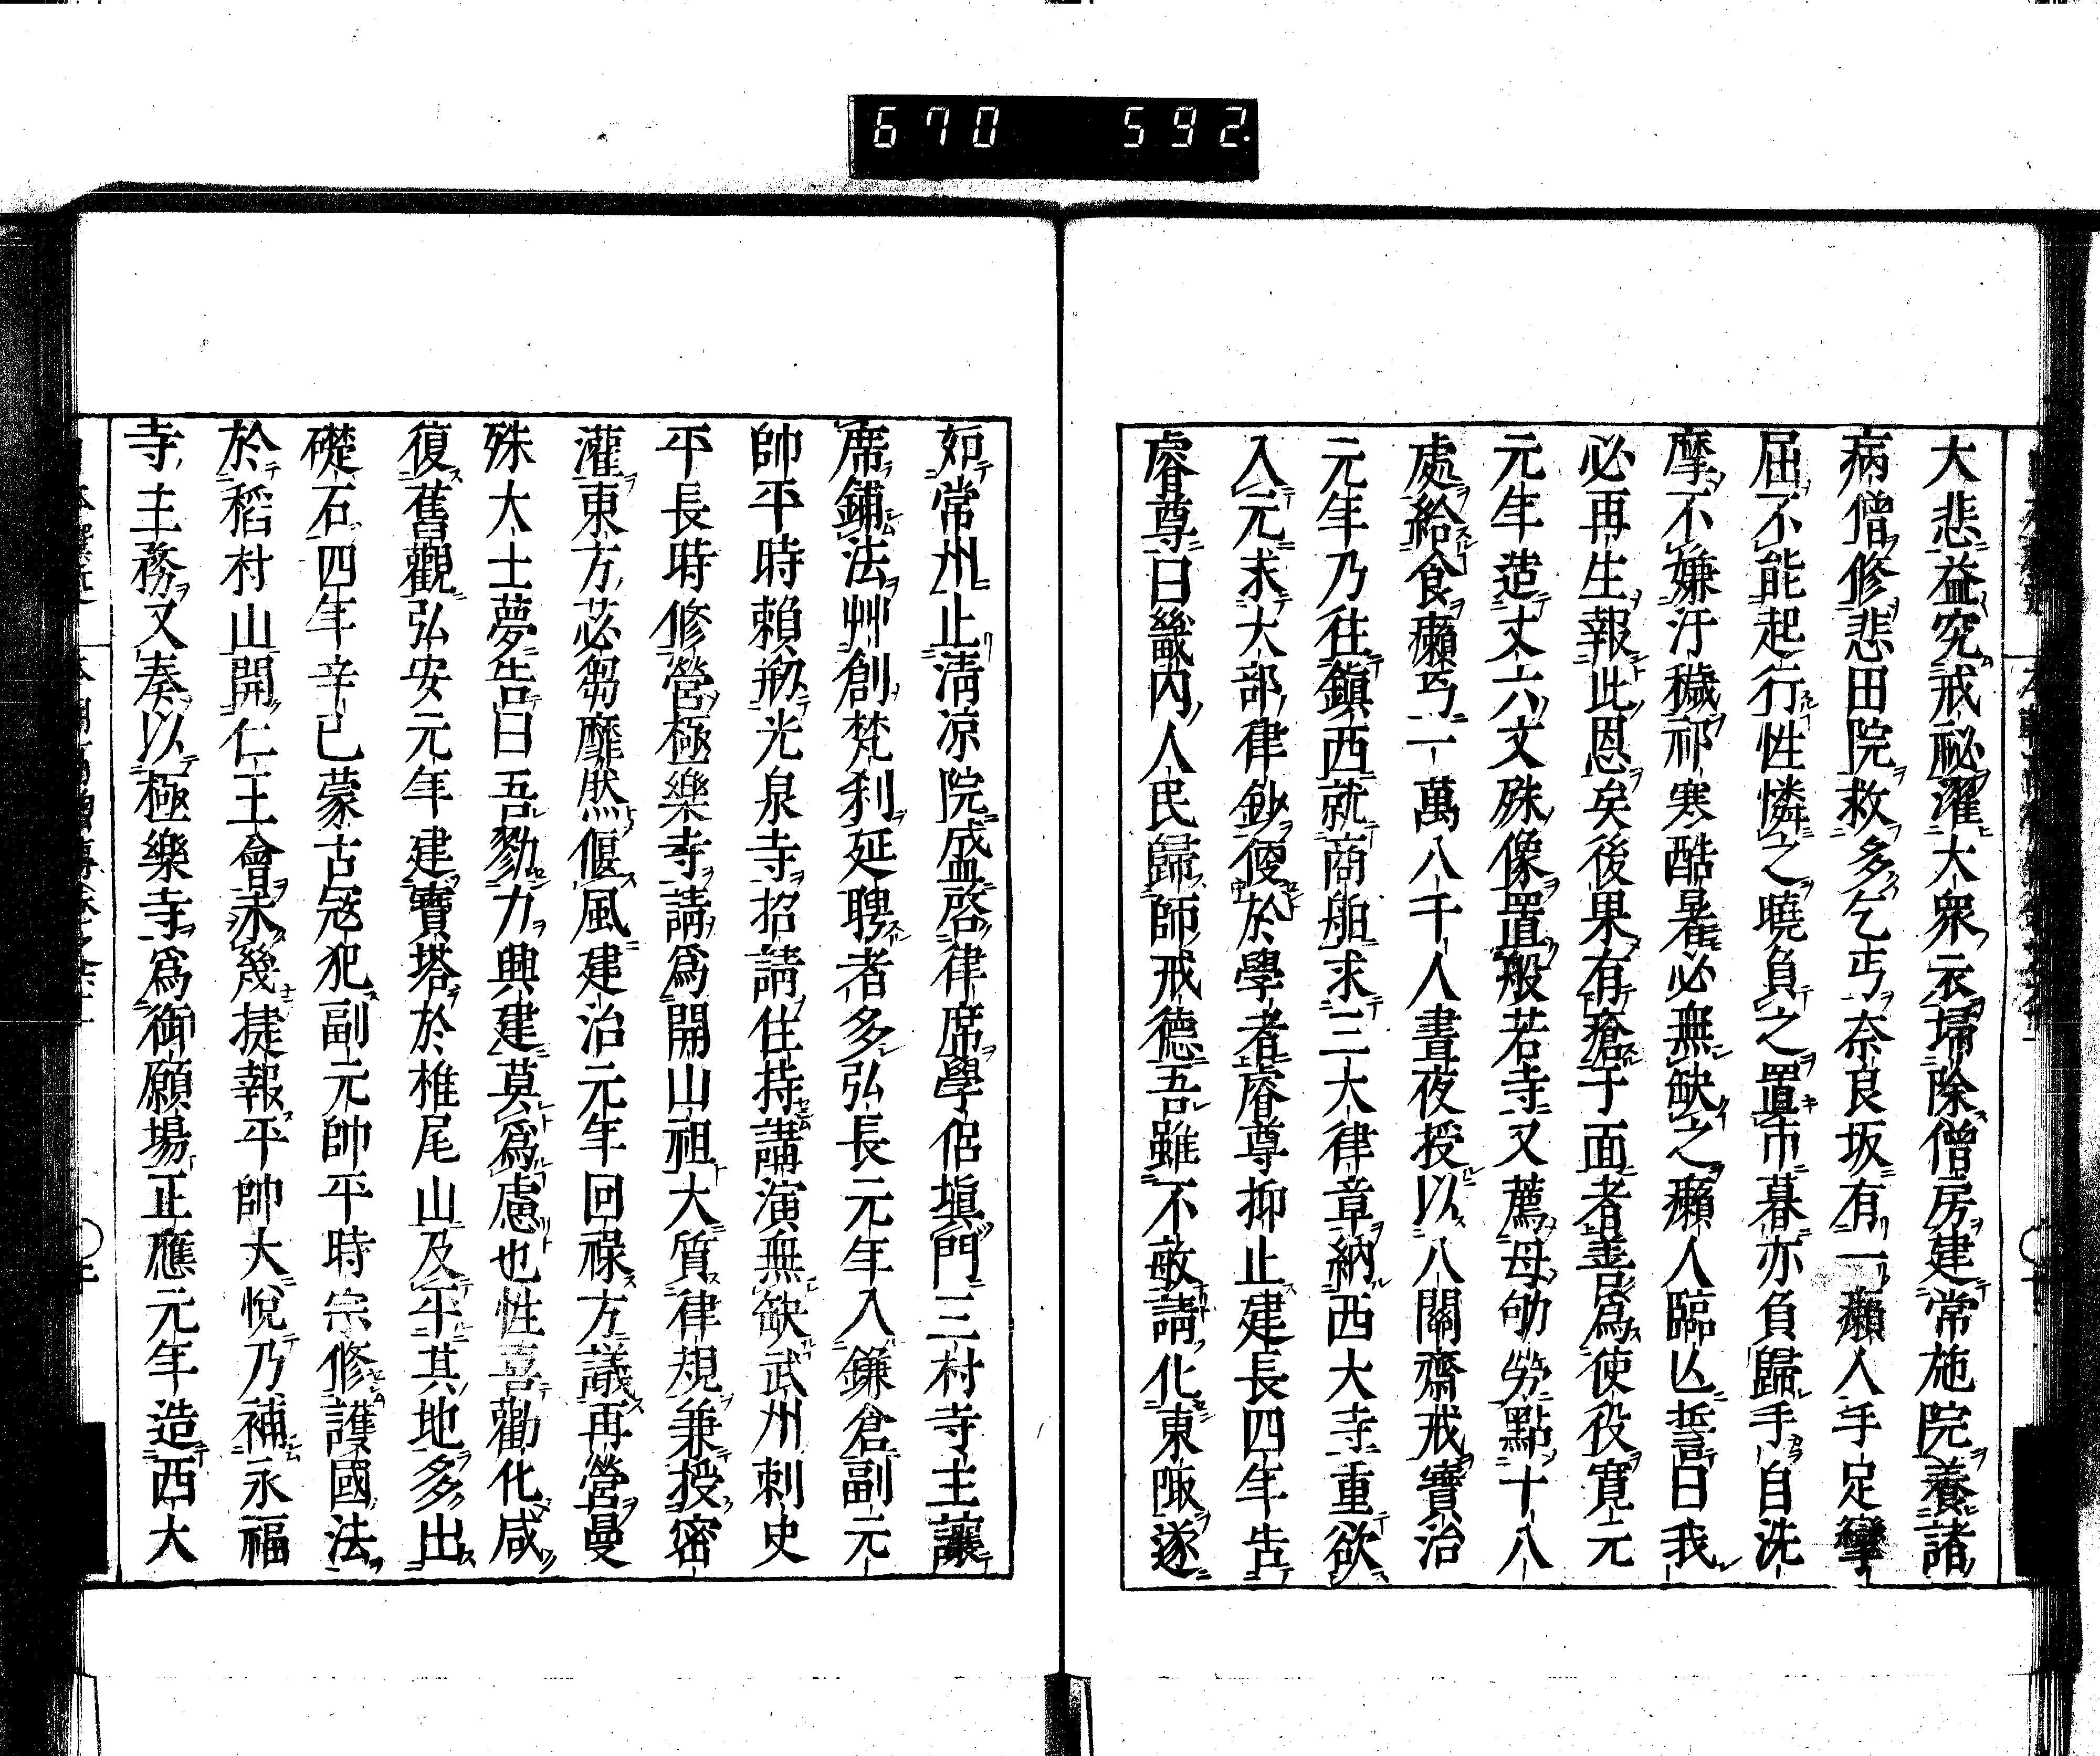 670 592.
大悲益究戒祕濯大衆衣掃除僧房建常施院養諸
病僧修悲田院救多乞丐奈良坂有一癩人手足攣
屈不能起行性憐之曉負之置市暮亦負歸手自洗
摩不嫌汙穢祁寒酷暑必無缺之癩人臨亡誓曰我
必再生報此恩矣後果有瘡于面者善爲使役寛元
元年造丈六文殊像置般若寺又薦母劬勞點十八
處給食癩丐一萬八千人晝夜授以八關齋戒寶治
元年乃往鎭西就商舶求三大律章納西大寺重欲
入元求大部律鈔便於學者睿尊抑止建長四年告
睿尊曰畿內人民歸師戒德吾雖不敏請化東陬遂
如常州止淸凉院盛啓律席學侶塡門三村寺主讓
席鋪法艸創梵刹延聘者多弘長元年入鎌倉副元
帥平時賴剏光泉寺招請住持講演無缺武州刺史
平長時修營極樂寺請爲開山祖大質律規兼授密
灌東方苾芻靡然偃風建治元年回祿方議再營曼
殊大士夢告曰吾勠力興建莫爲慮也性喜勸化咸
復舊觀弘安元年建寶塔於椎尾山及平其地多出
礎石四年辛巳蒙古寇犯副元帥平時宗修護國法
於稻村山開仁王會未幾捷報平帥大悅乃補永福
寺主務又奏以極樂寺爲御願場正應元年造西大